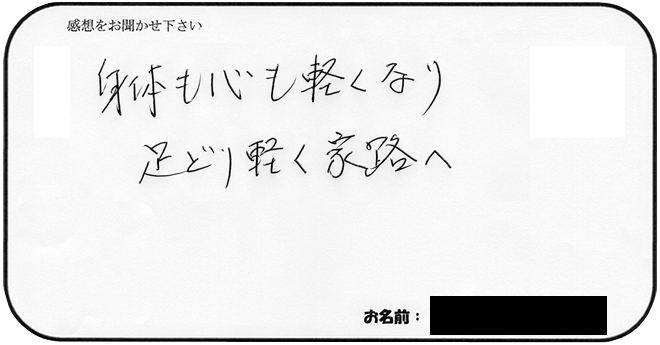 感想をお聞かせ下さい
身体も心も軽くなり
足どり軽く家路へ
お名前：